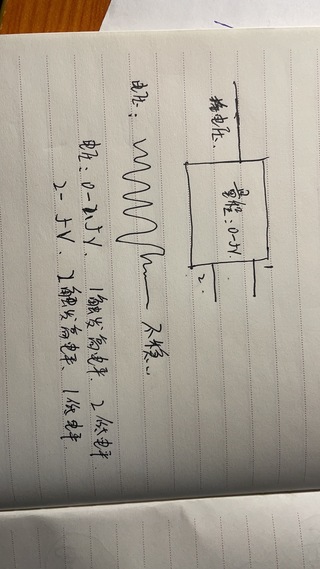 输电压
量程:0-5V.
1
2.
电压:
不稳。
电压:0-2.5V. 1触发高电平. 2低电平
2-5V. 2触发高电平. 1低电平.